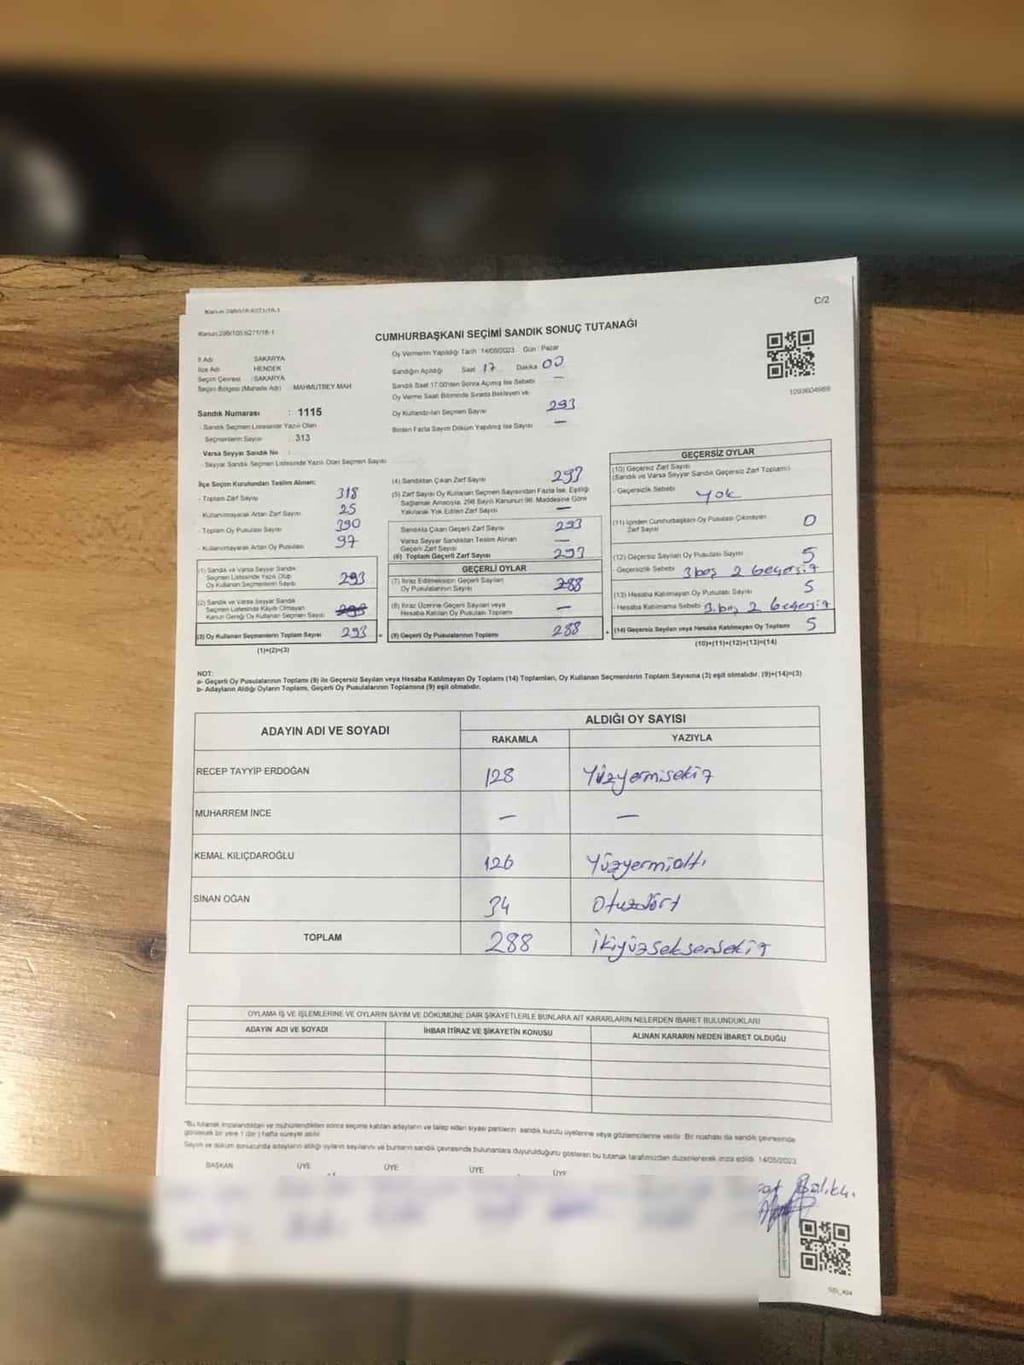 C/2
Kanun:298/105:6271/18-1
CUMHURBAŞKANI SEÇİMİ SANDIK SONUÇ TUTANAĞI
İl Adı SAKARYA
İlçe Adı HENDEK
Seçim Çevresi : SAKARYA
Seçim Bölgesi (Mahalle Adı) : MAHMUTBEY MAH
Sandık Numarası : 1115
- Sandık Seçmen Listesinde Yazılı Olan
Seçmenlerin Sayısı : 313
Varsa Seyyar Sandık No :
- Seyyar Sandık Seçmen Listesinde Yazılı Olan Seçmen Sayısı
Oy Vermenin Yapıldığı Tarih : 14/05/2023 Gün : Pazar
Sandığın Açıldığı Saat 17 Dakika 00
Sandık Saat 17.00'den Sonra Açılmış İse Sebebi —
Oy Verme Saati Bitiminde Sırada Bekleyen ve
Oy Kullandırılan Seçmen Sayısı 293
Birden Fazla Sayım Döküm Yapılmış İse Sayısı —
1093604969
İlçe Seçim Kurulundan Teslim Alınan:
- Toplam Zarf Sayısı 318
- Kullanılmayarak Artan Zarf Sayısı 25
- Toplam Oy Pusulası Sayısı 390
- Kullanılmayarak Artan Oy Pusulası 97
(1) Sandık ve Varsa Seyyar Sandık
Seçmen Listesinde Yazılı Olup
Oy Kullanan Seçmenlerin Sayısı 293
(2) Sandık ve Varsa Seyyar Sandık
Seçmen Listesinde Kayıtlı Olmayan
Kanun Gereği Oy Kullanan Seçmen Sayısı
(3) Oy Kullanan Seçmenlerin Toplam Sayısı 293
(1)+(2)=(3)
(4) Sandıktan Çıkan Zarf Sayısı 293
(5) Zarf Sayısı Oy Kullanan Seçmen Sayısından Fazla İse, Eşitliği
Sağlamak Amacıyla, 298 Sayılı Kanunun 98. Maddesine Göre
Yakılarak Yok Edilen Zarf Sayısı —
Sandıkta Çıkan Geçerli Zarf Sayısı 293
Varsa Seyyar Sandıktan Teslim Alınan
Geçerli Zarf Sayısı —
(6) Toplam Geçerli Zarf Sayısı 293
GEÇERLİ OYLAR
(7) İtiraz Edilmeksizin Geçerli Sayılan
Oy Pusulalarının Sayısı 288
(8) İtiraz Üzerine Geçerli Sayılan veya
Hesaba Katılan Oy Pusulası Toplamı —
(9) Geçerli Oy Pusulalarının Toplamı 288
GEÇERSİZ OYLAR
(10) Geçersiz Zarf Sayısı
(Sandık ve Varsa Seyyar Sandık Geçersiz Zarf Toplamı)
- Geçersizlik Sebebi yok
(11) İçinden Cumhurbaşkanı Oy Pusulası Çıkmayan
Zarf Sayısı 0
(12) Geçersiz Sayılan Oy Pusulası Sayısı 5
- Geçersizlik Sebebi 3 boş 2 geçersiz
(13) Hesaba Katılmayan Oy Pusulası Sayısı 5
- Hesaba Katılmama Sebebi 3 boş 2 geçersiz
(14) Geçersiz Sayılan veya Hesaba Katılmayan Oy Toplamı 5
(10)+(11)+(12)+(13)=(14)
NOT:
a- Geçerli Oy Pusulalarının Toplamı (9) ile Geçersiz Sayılan veya Hesaba Katılmayan Oy Toplamı (14) Toplamları, Oy Kullanan Seçmenlerin Toplam Sayısına (3) eşit olmalıdır. (9)+(14)=(3)
b- Adayların Aldığı Oyların Toplamı, Geçerli Oy Pusulalarının Toplamına (9) eşit olmalıdır.
ADAYIN ADI VE SOYADI ALDIĞI OY SAYISI
RAKAMLA YAZIYLA
RECEP TAYYİP ERDOĞAN 128 Yüzyermisekiz
MUHARREM İNCE — —
KEMAL KILIÇDAROĞLU 126 Yüzyermialtı
SİNAN OĞAN 34 Otuzdört
TOPLAM 288 İkiyüzseksensekiz
OYLAMA İŞ VE İŞLEMLERİNE VE OYLARIN SAYIM VE DÖKÜMÜNE DAİR ŞİKAYETLERLE BUNLARA AİT KARARLARIN NELERDEN İBARET BULUNDUKLARI
ADAYIN ADI VE SOYADI İHBAR İTİRAZ VE ŞİKAYETİN KONUSU ALINAN KARARIN NEDEN İBARET OLDUĞU
*Bu tutanak imzalandıktan ve mühürlendikten sonra seçime katılan adayların ve talep eden siyasi partilerin sandık kurulu üyelerine veya gözlemcilerine verilir. Bir nüshası da sandık çevresinde
görülecek bir yere 1 (bir) hafta süreyle asılır.
Sayım ve döküm sonucunda adayların aldığı oyların sayılarını ve bunların sandık çevresinde bulunanlara duyurulduğunu gösteren bu tutanak tarafımızdan düzenlenerek imza edildi. 14/05/2023
BAŞKAN ÜYE ÜYE ÜYE ÜYE